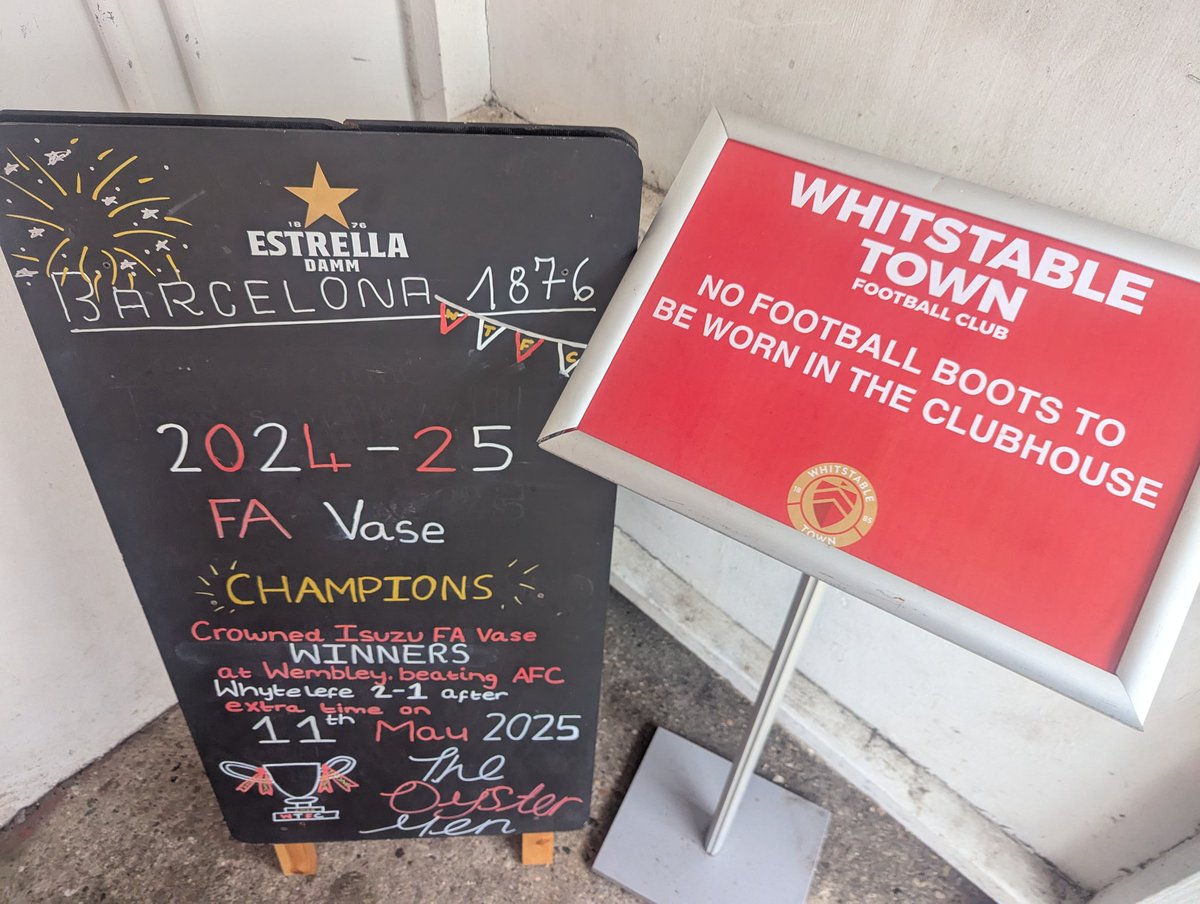 1876
ESTRELLA
DAMM
BARCELONA 1876
WTFC
2024-25
FA Vase
CHAMPIONS
Crowned Isuzu FA Vase
WINNERS
at Wembley. beating AFC
Whytelefe 2-1 after
extra time on
11th May 2025
WTFC
The
Oyster
Men
WHITSTABLE
TOWN
FOOTBALL CLUB
NO FOOTBALL BOOTS TO
BE WORN IN THE CLUBHOUSE
WHITSTABLE
18 85
TOWN